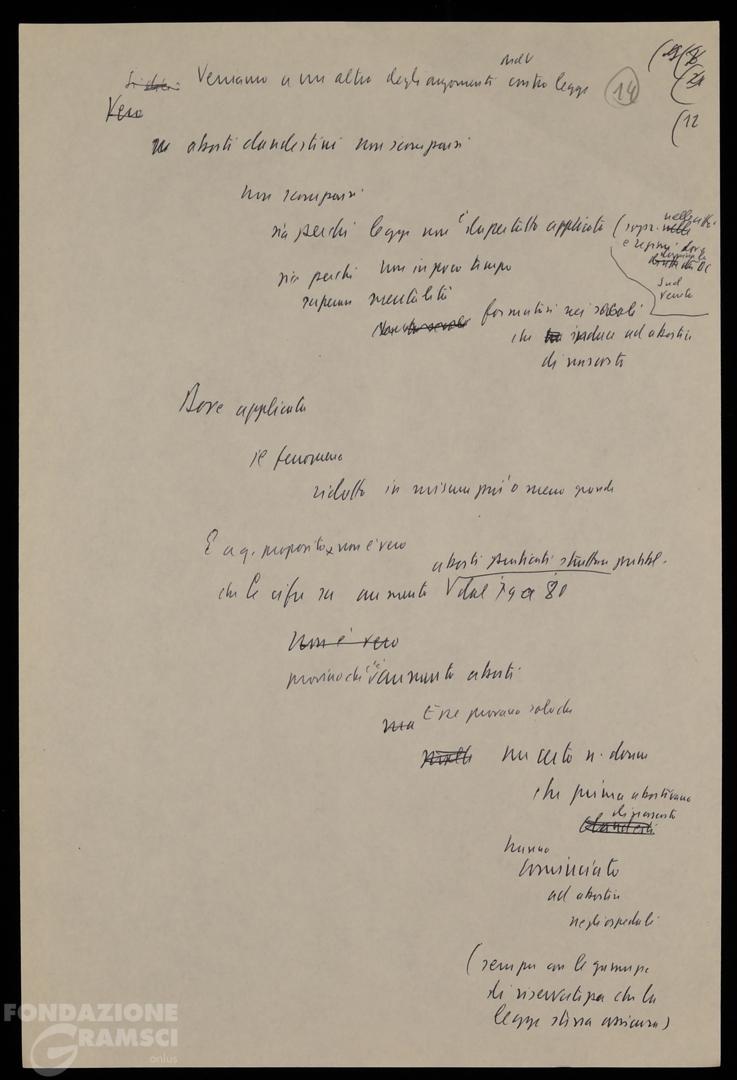 Si dice: Veniamo a un altro degli argomenti mdV contro legge 14
(12
Vero
aborti clandestini non scomparsi
non scomparsi
sia perché legge non è dapertutto applicata (sopr. nelle
e regioni dove
Sud
Veneto
sia perché non in poco tempo
superano mentalità
formatisi nei secoli
che induce ad abortire
di nascosto
Dove applicata
il fenomeno
ridotto in misura più o meno grande
E a q. proposito non è vero
aborti praticati strutture pubbl.
che le cifre su aumento dal 79 a 80
Non è vero
provino che c'è aumento aborti
ma Esse provano solo che
un certo n. donne
che prima abortivano
di nascosto
clandesti
hanno
cominciato
ad abortire
negli ospedali
(sempre con le garanzie
di riservatezza che la
legge stessa assicura)
FONDAZIONE
GRAMSCI
onlus